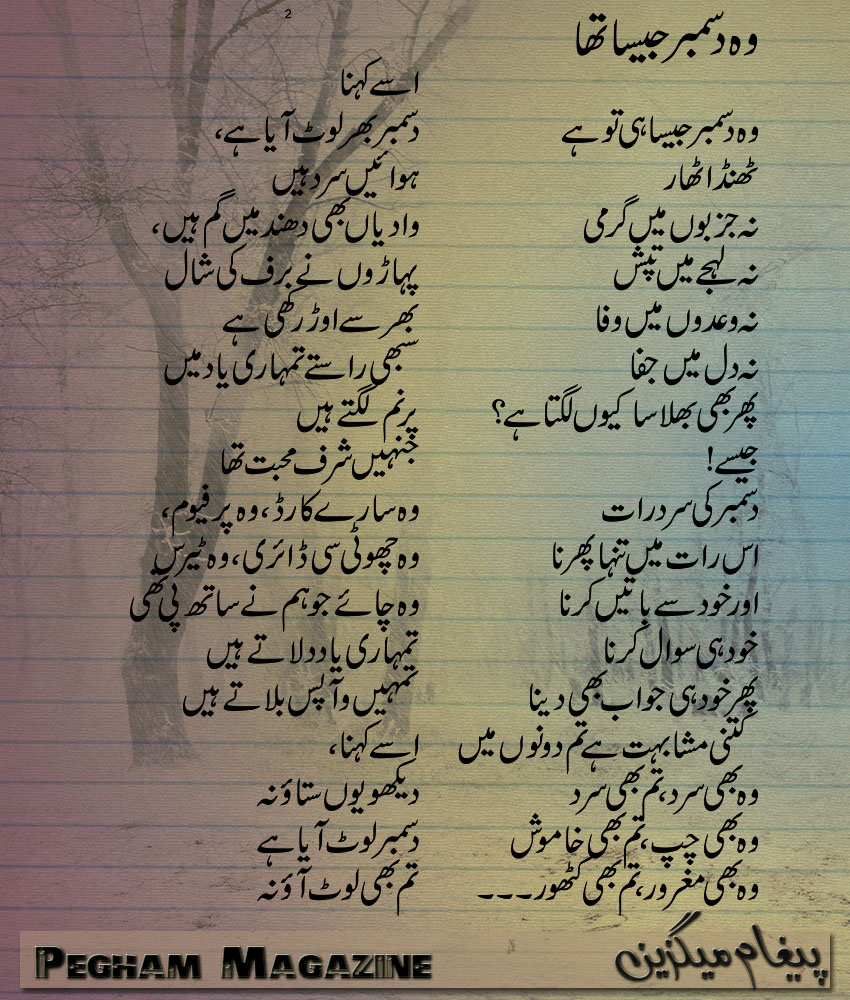 2
وہ دسمبر جیسا تھا
وہ دسمبر جیسا ہی تو ہے
ٹھنڈا ٹھار
نہ جزبوں میں گرمی
نہ لہجے میں تپش
نہ وعدوں میں وفا
نہ دل میں جفا
پھر بھی بھلا سا کیوں لگتا ہے؟
جیسے!
دسمبر کی سرد رات
اس رات میں تنہا پھرنا
اور خود سے باتیں کرنا
خود ہی سوال کرنا
پھر خود ہی جواب بھی دینا
کتنی مشابہت ہے تم دونوں میں
وہ بھی سرد، تم بھی سرد
وہ بھی چپ، تم بھی خاموش
وہ بھی مغرور، تم بھی کٹھور۔۔۔
اسے کہنا
دسمبر بھر لوٹ آیا ہے،
ہوائیں سرد ہیں
وادیاں بھی دھند میں گم ہیں،
پہاڑوں نے برف کی شال
بھر سے اوڑ رکھی ہے
سبھی راستے تمہاری یاد میں
پرنم لگتے ہیں
جنہیں شرف محبت تھا
وہ سارے کارڈ، وہ پرفیوم،
وہ چھوٹی سی ڈائری، وہ ٹیرس
وہ چائے جو ہم نے ساتھ پی تھی
تمہاری یاد دلاتے ہیں
تمہیں وآپس بلاتے ہیں
اسے کہنا،
دیکھو یوں ستاؤ نہ
دسمبر لوٹ آیا ہے
تم بھی لوٹ آؤ نہ
PEGHAM MAGAZINE
پیغام میگزین